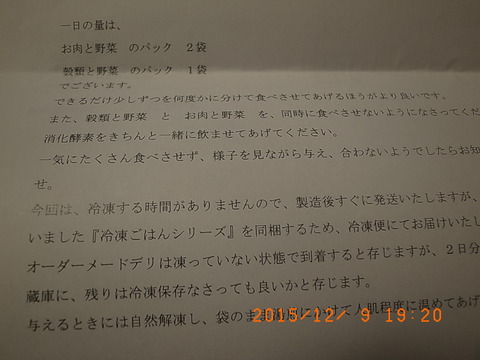 一日の量は、
お肉と野菜　のパック　２袋
穀類と野菜　のパック　１袋
でございます。
できるだけ少しずつを何度かに分けて食べさせてあげるほうがより良いです。
また、穀類と野菜　と　お肉と野菜　を、同時に食べさせないようになさってくだ
消化酵素をきちんと一緒に飲ませてあげてください。
一気にたくさん食べさせず、様子を見ながら与え、合わないようでしたらお知
せ。
今回は、冷凍する時間がありませんので、製造後すぐに発送いたしますが、
いました『冷凍ごはんシリーズ』を同梱するため、冷凍便にてお届けいたし
オーダーメードデリは凍っていない状態で到着すると存じますが、２日分
蔵庫に、残りは冷凍保存なさっても良いかと存じます。
与えるときには自然解凍し、袋のまま湯煎にかけて人肌程度に温めてあげ
2015/12/ 9 19:20